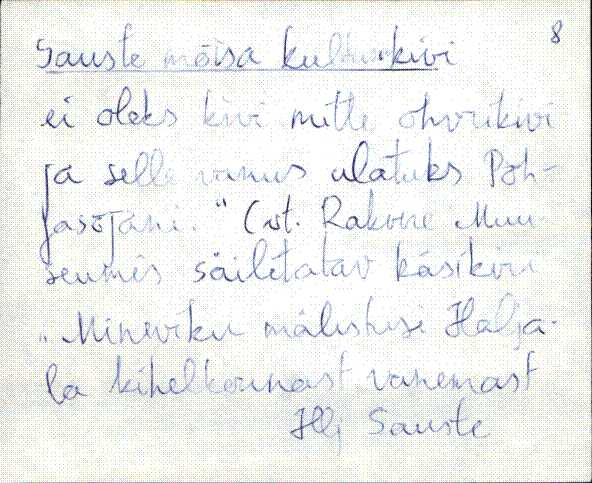 8
Sauste mõisa kultusekivi
ei oleks kivi mitte ohvrikivi
ja selle vanus ulatuks Põh-
jasõjani." (vt. Rakvere Muu-
seumis säilitatav käsikiri
"Mineviku mälestusi Halja-
la kihelkonnast vanemast
Hlj Sauste